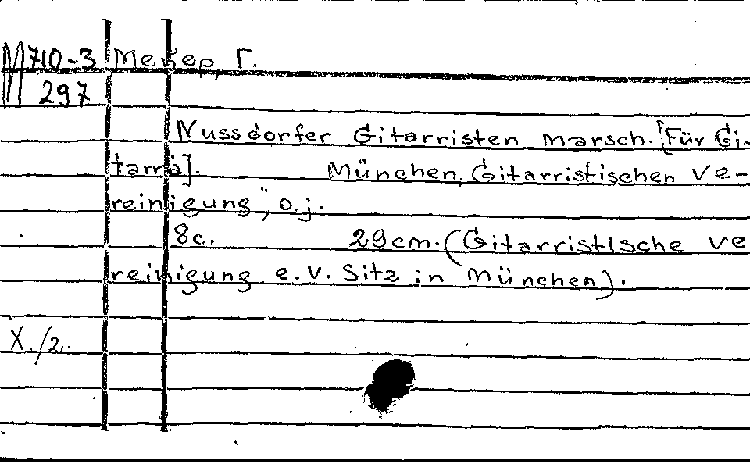 М710-3 Мейер, Г.
297
Nussdorfer Gitarristen marsch. [Für Gi-
tarra]. München, Gitarristischen Ve-
reinigung", o.j.
8c. 29cm. (Gitarristische Ve
reinigung e.V. Sitz in München).
X./2.